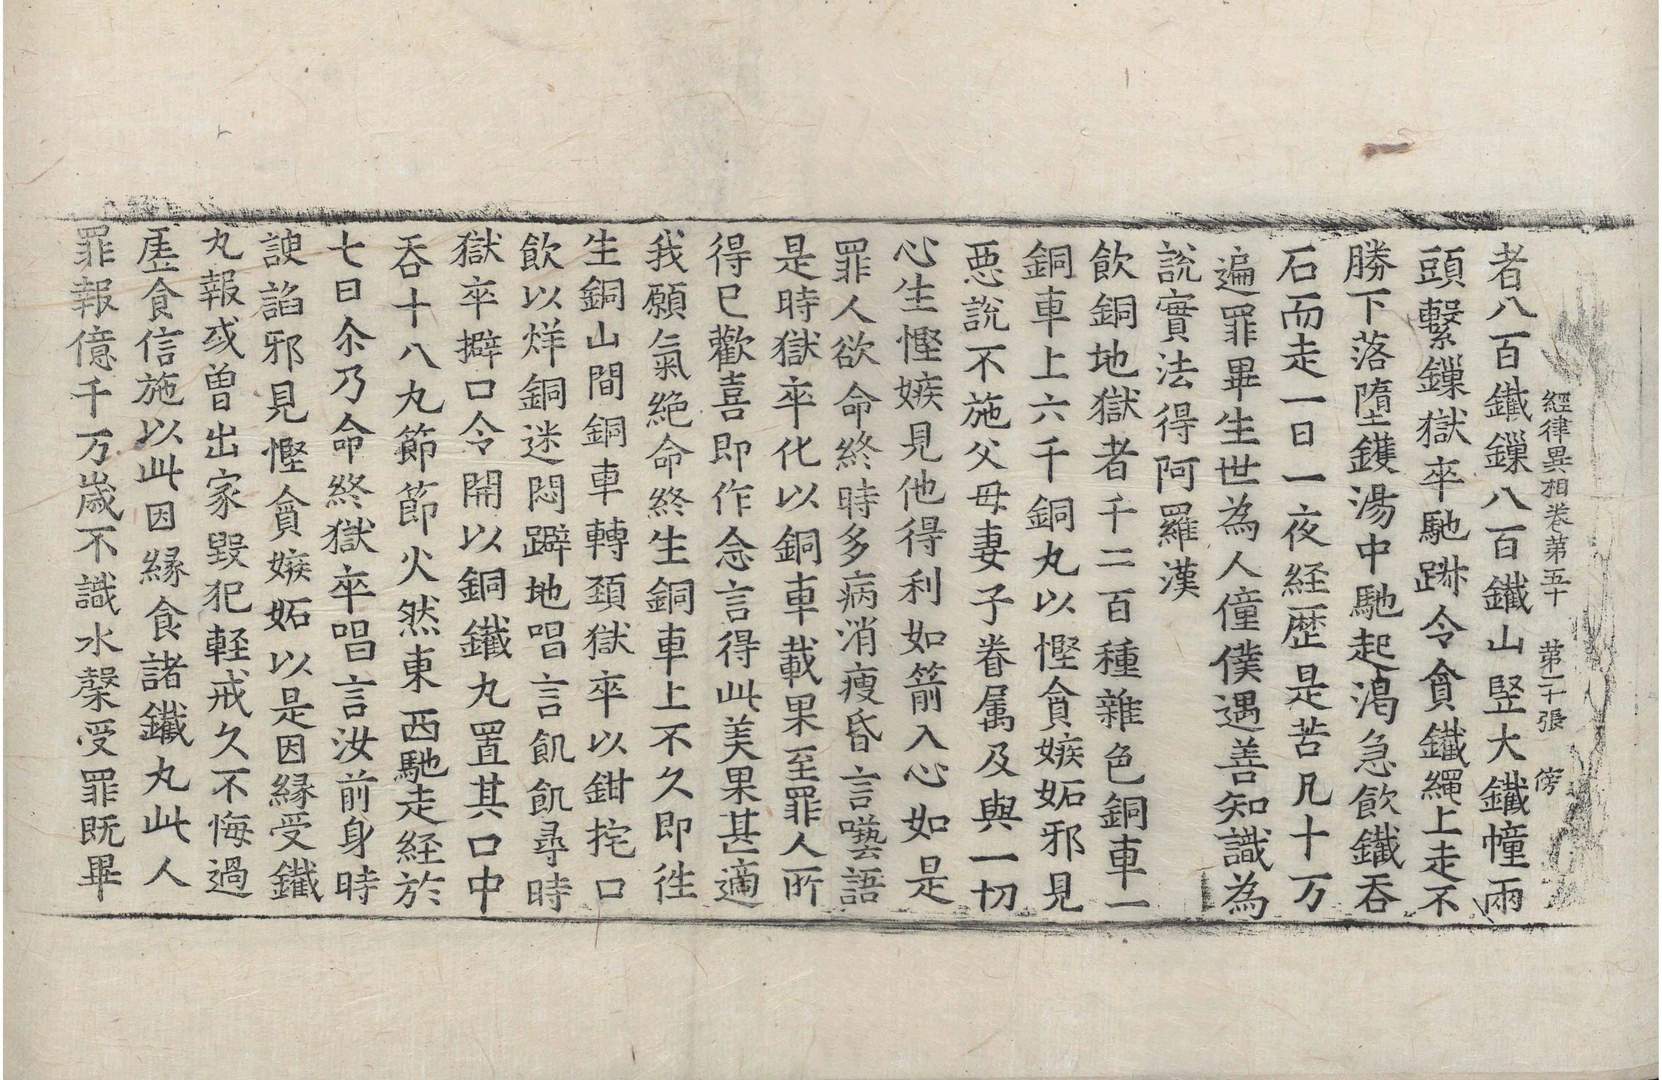 經律異相卷第五十　第二十張　傍
者八百鐵鏁八百鐵山竪大鐵幢兩
頭繫鏁獄卒馳䠞令貪鐵繩上走不
勝下落墮鑊湯中馳起渴急飲鐵吞
石而走一日一夜経歷是苦凡十万
遍罪畢生世為人僮僕遇善知識為
說實法得阿羅漢
飲銅地獄者千二百種雜色銅車一
銅車上六千銅丸以慳貪嫉妬邪見
惡說不施父母妻子眷属及與一切
心生慳嫉見他得利如箭入心如是
罪人欲命終時多病消瘦昏言囈語
是時獄卒化以銅車載果至罪人所
得已歡喜即作念言得此美果甚適
我願氣絶命終生銅車上不久即徃
生銅山間銅車轢頚獄卒以鉗挓口
飲以烊銅迷悶躃地唱言飢飢尋時
獄卒擗口令開以銅鐵丸置其口中
吞十八丸節節火然東西馳走経於
七日尒乃命終獄卒唱言汝前身時
諛諂邪見慳貪嫉妬以是因縁受鐵
丸報或曽出家毀犯軽戒久不悔過
虗食信施以此因縁食諸鐵丸此人
罪報億千万歳不識水糓受罪既畢